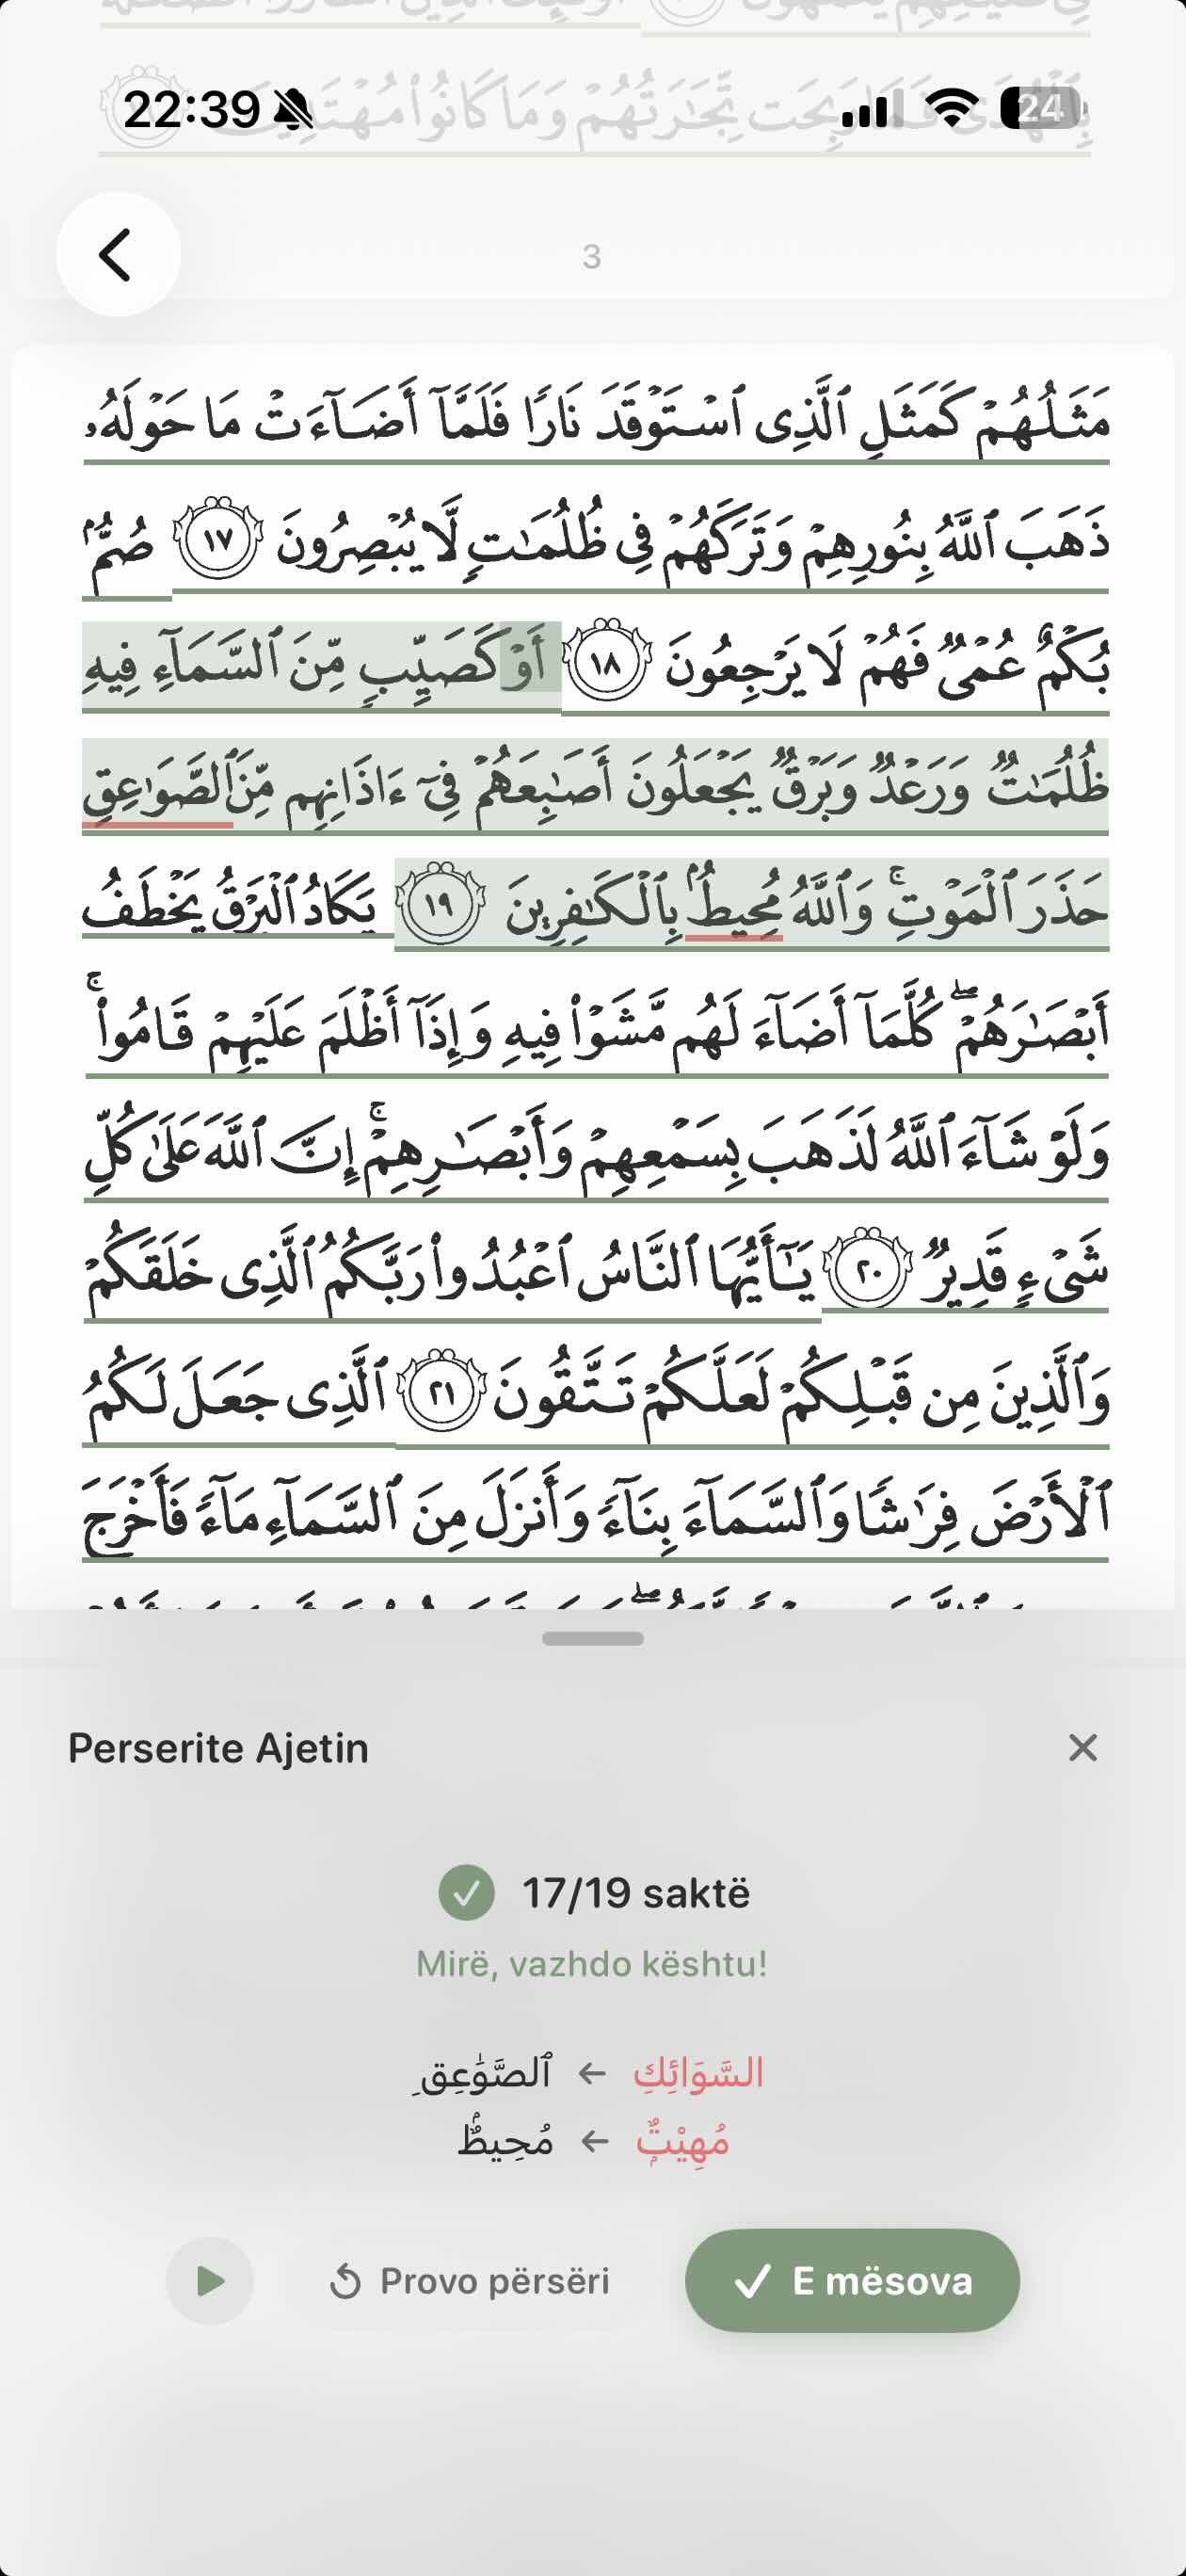 22:39
24
3
مَثَلُهُمْ كَمَثَلِ ٱلَّذِى ٱسْتَوْقَدَ نَارًا فَلَمَّآ أَضَآءَتْ مَا حَوْلَهُۥ
ذَهَبَ ٱللَّهُ بِنُورِهِمْ وَتَرَكَهُمْ فِى ظُلُمَٰتٍ لَّا يُبْصِرُونَ ١٧ صُمٌّۢ
بُكْمٌ عُمْىٌ فَهُمْ لَا يَرْجِعُونَ ١٨ أَوْ كَصَيِّبٍ مِّنَ ٱلسَّمَآءِ فِيهِ
ظُلُمَٰتٌ وَرَعْدٌ وَبَرْقٌ يَجْعَلُونَ أَصَٰبِعَهُمْ فِىٓ ءَاذَانِهِم مِّنَ ٱلصَّوَٰعِقِ
حَذَرَ ٱلْمَوْتِ ۚ وَٱللَّهُ مُحِيطٌۢ بِٱلْكَٰفِرِينَ ١٩ يَكَادُ ٱلْبَرْقُ يَخْطَفُ
أَبْصَٰرَهُمْ ۖ كُلَّمَآ أَضَآءَ لَهُم مَّشَوْا۟ فِيهِ وَإِذَآ أَظْلَمَ عَلَيْهِمْ قَامُوا۟ ۚ
وَلَوْ شَآءَ ٱللَّهُ لَذَهَبَ بِسَمْعِهِمْ وَأَبْصَٰرِهِمْ ۚ إِنَّ ٱللَّهَ عَلَىٰ كُلِّ
شَىْءٍ قَدِيرٌ ٢٠ يَٰٓأَيُّهَا ٱلنَّاسُ ٱعْبُدُوا۟ رَبَّكُمُ ٱلَّذِى خَلَقَكُمْ
وَٱلَّذِينَ مِن قَبْلِكُمْ لَعَلَّكُمْ تَتَّقُونَ ٢١ ٱلَّذِى جَعَلَ لَكُمُ
ٱلْأَرْضَ فِرَٰشًا وَٱلسَّمَآءَ بِنَآءً وَأَنزَلَ مِنَ ٱلسَّمَآءِ مَآءً فَأَخْرَجَ
Perserite Ajetin
17/19 saktë
Mirë, vazhdo kështu!
السَّوَائِكِ ← ٱلصَّوَٰعِقِ
مُهِيْتٌۭ ← مُحِيطٌۢ
Provo përsëri
E mësova